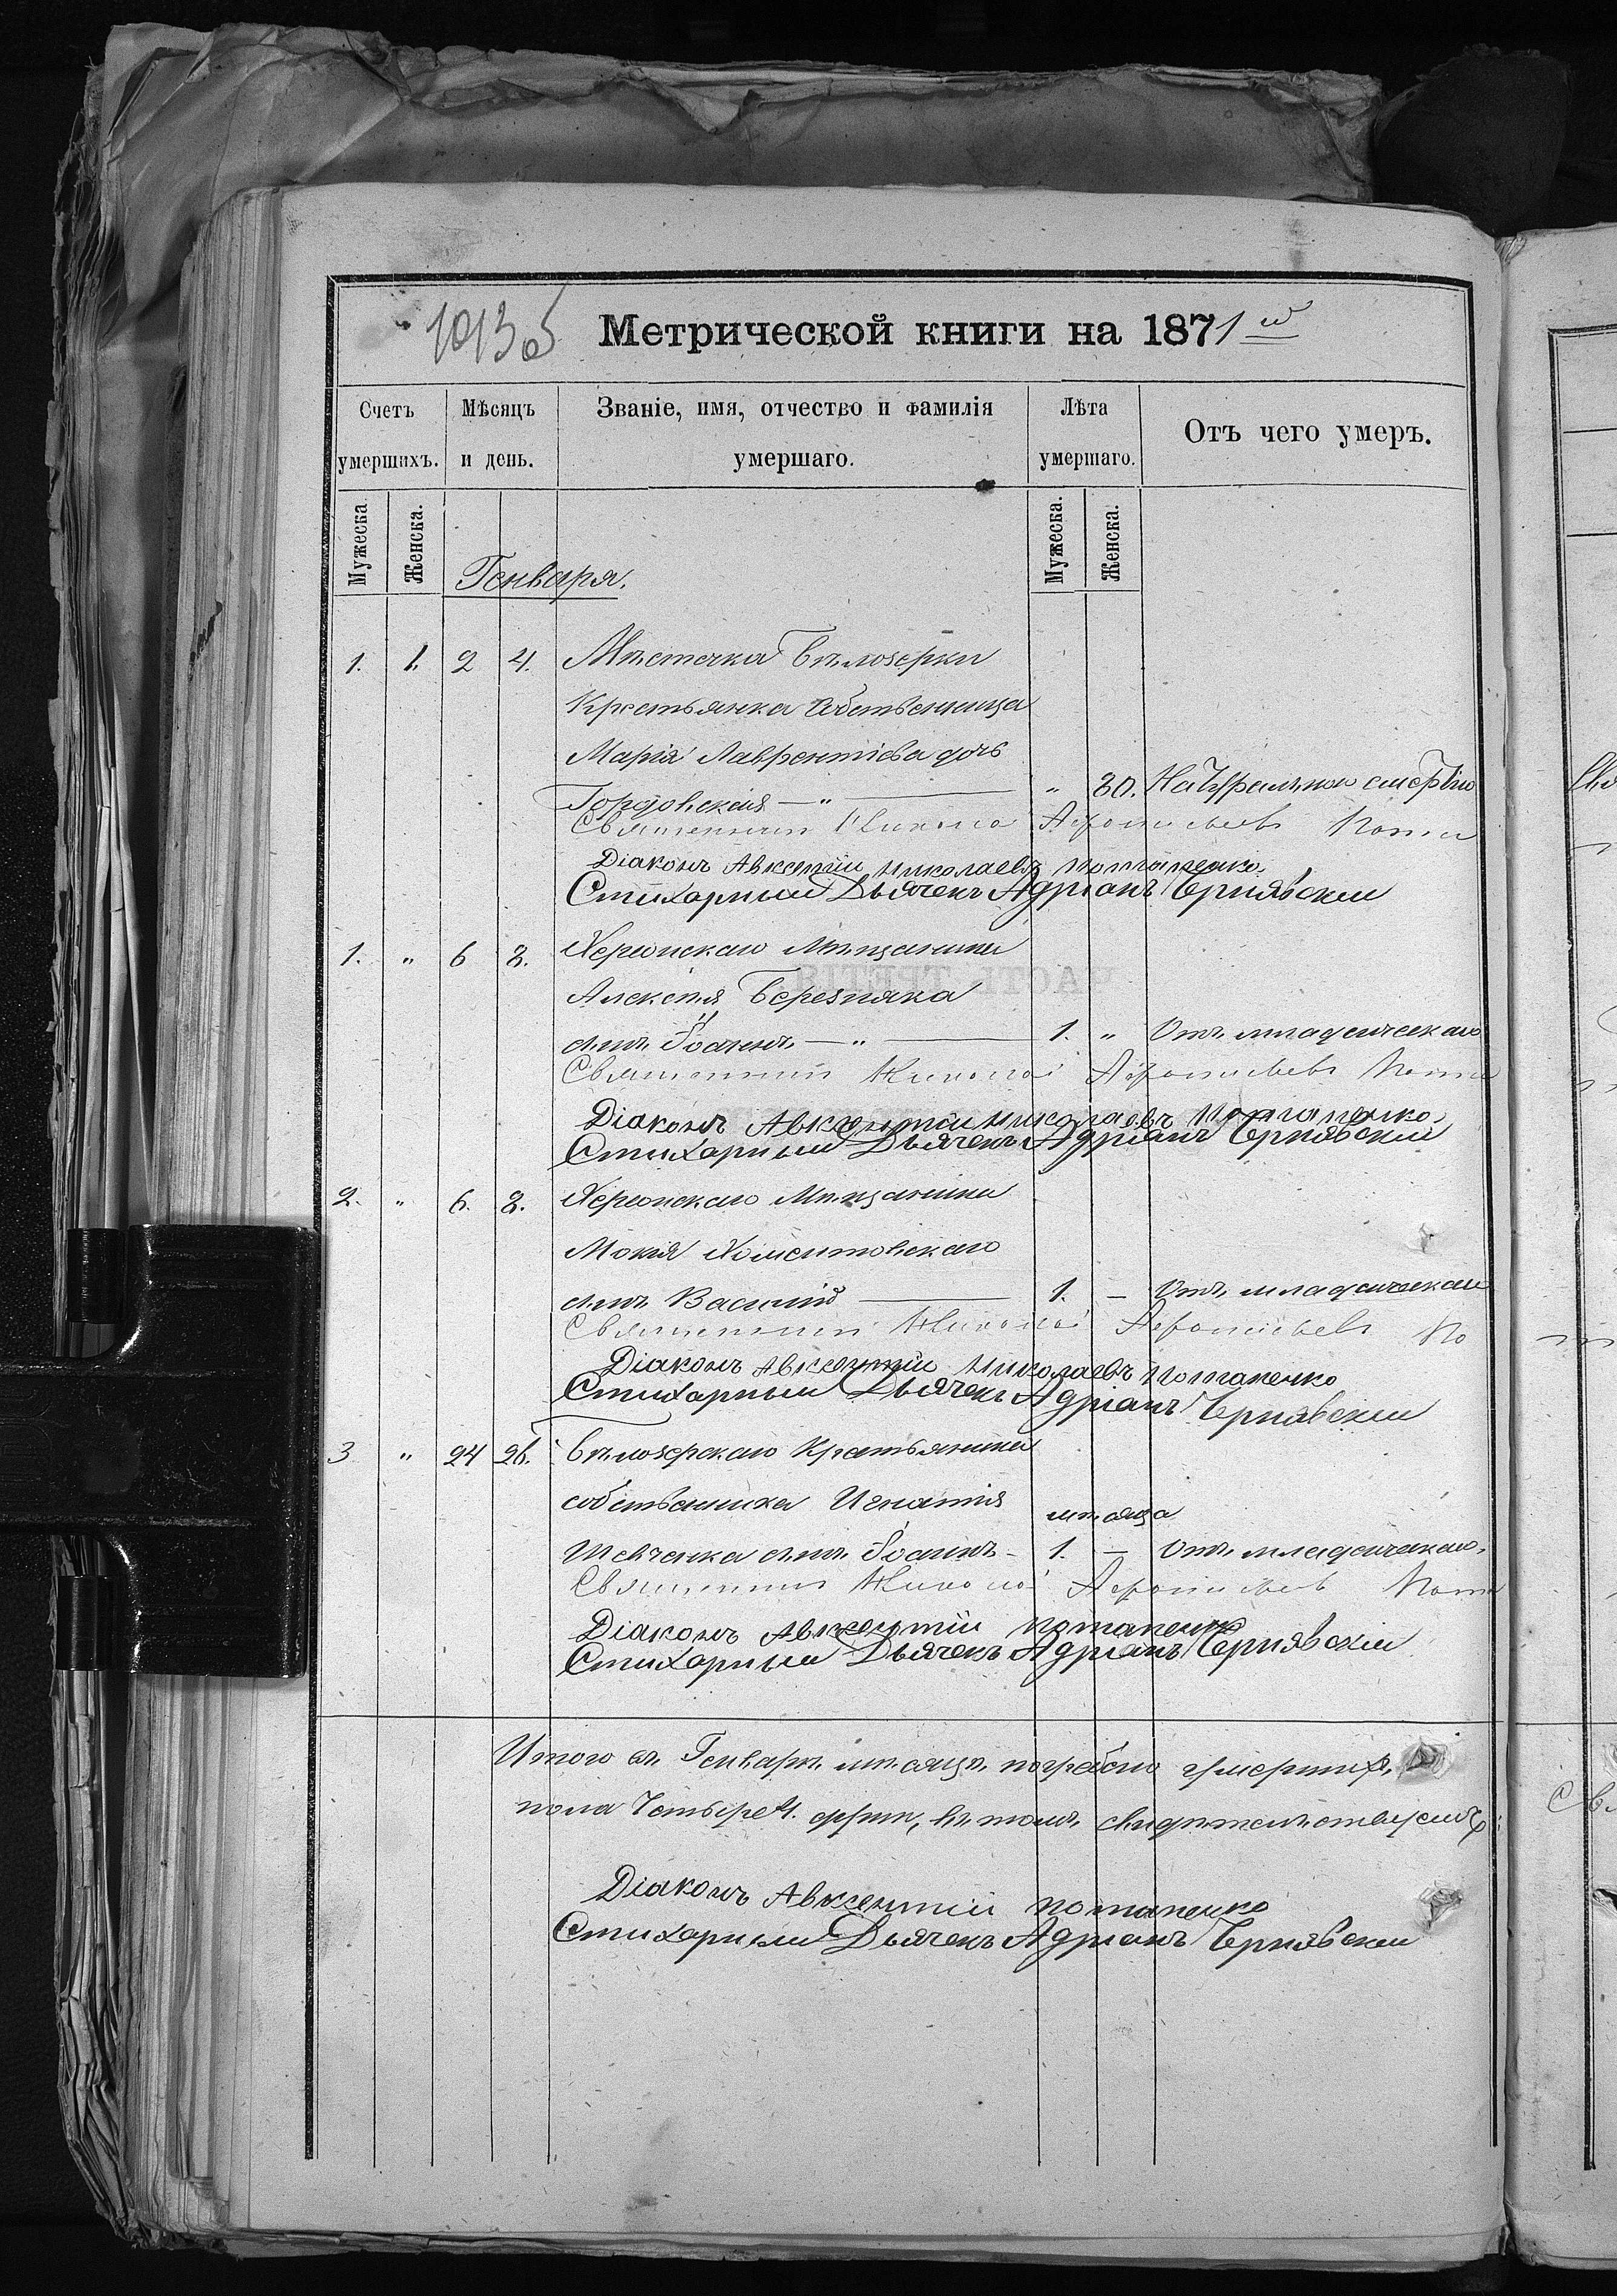 1013 об
Метрической книги на 1871 й
Счетъ умершихъ.
Мѣсяцъ и день.
Званіе, имя, отчество и фамилія умершаго.
Лѣта умершаго.
Отъ чего умеръ.
Мужеска.
Женска.
Мужеска.
Женска.
Генваря.
1. 1. 2 4. Мѣстечка Бѣлозерки
Крестьянка собственница
Марія Лаврентіева дочь
Гордовская — " — " 80. Натуральною смертію
Священникъ Николай
Діаконъ Авксентій Николаевъ Потапенко.
Стихарный Дьячекъ Адріанъ Чернявскій
1. " 6 8. Херсонскаго Мѣщанина
Алексѣя Березняка
сынъ Іоаннъ — " — 1. " Отъ младенческаго
Священникъ Николай
Діаконъ Авксентій Николаевъ Потапенко.
Стихарный Дьячекъ Адріанъ Чернявскій
2. " 6. 8. Херсонскаго Мѣщанина
Мокія Хоментовскаго
сынъ Василій — 1. — Отъ младенческаго
Священникъ Николай
Діаконъ Авксентій Николаевъ Потапенко
Стихарный Дьячекъ Адріанъ Чернявскій
3 " 24 26. Бѣлозерскаго Крестьянина
собственника Игнатія мѣсяца
Шевченка сынъ Іоаннъ - 1. — Отъ младенческаго.
Священникъ Николай
Діаконъ Авксентій Потапенко
Стихарный Дьячекъ Адріанъ Чернявскій
Итого въ Генварѣ мѣсяцѣ погребено умершихъ
пола Четыре 4. души, въ томъ свидѣтельствуемъ:
Діаконъ Авксентій Потапенко
Стихарный Дьячекъ Адріанъ Чернявскій